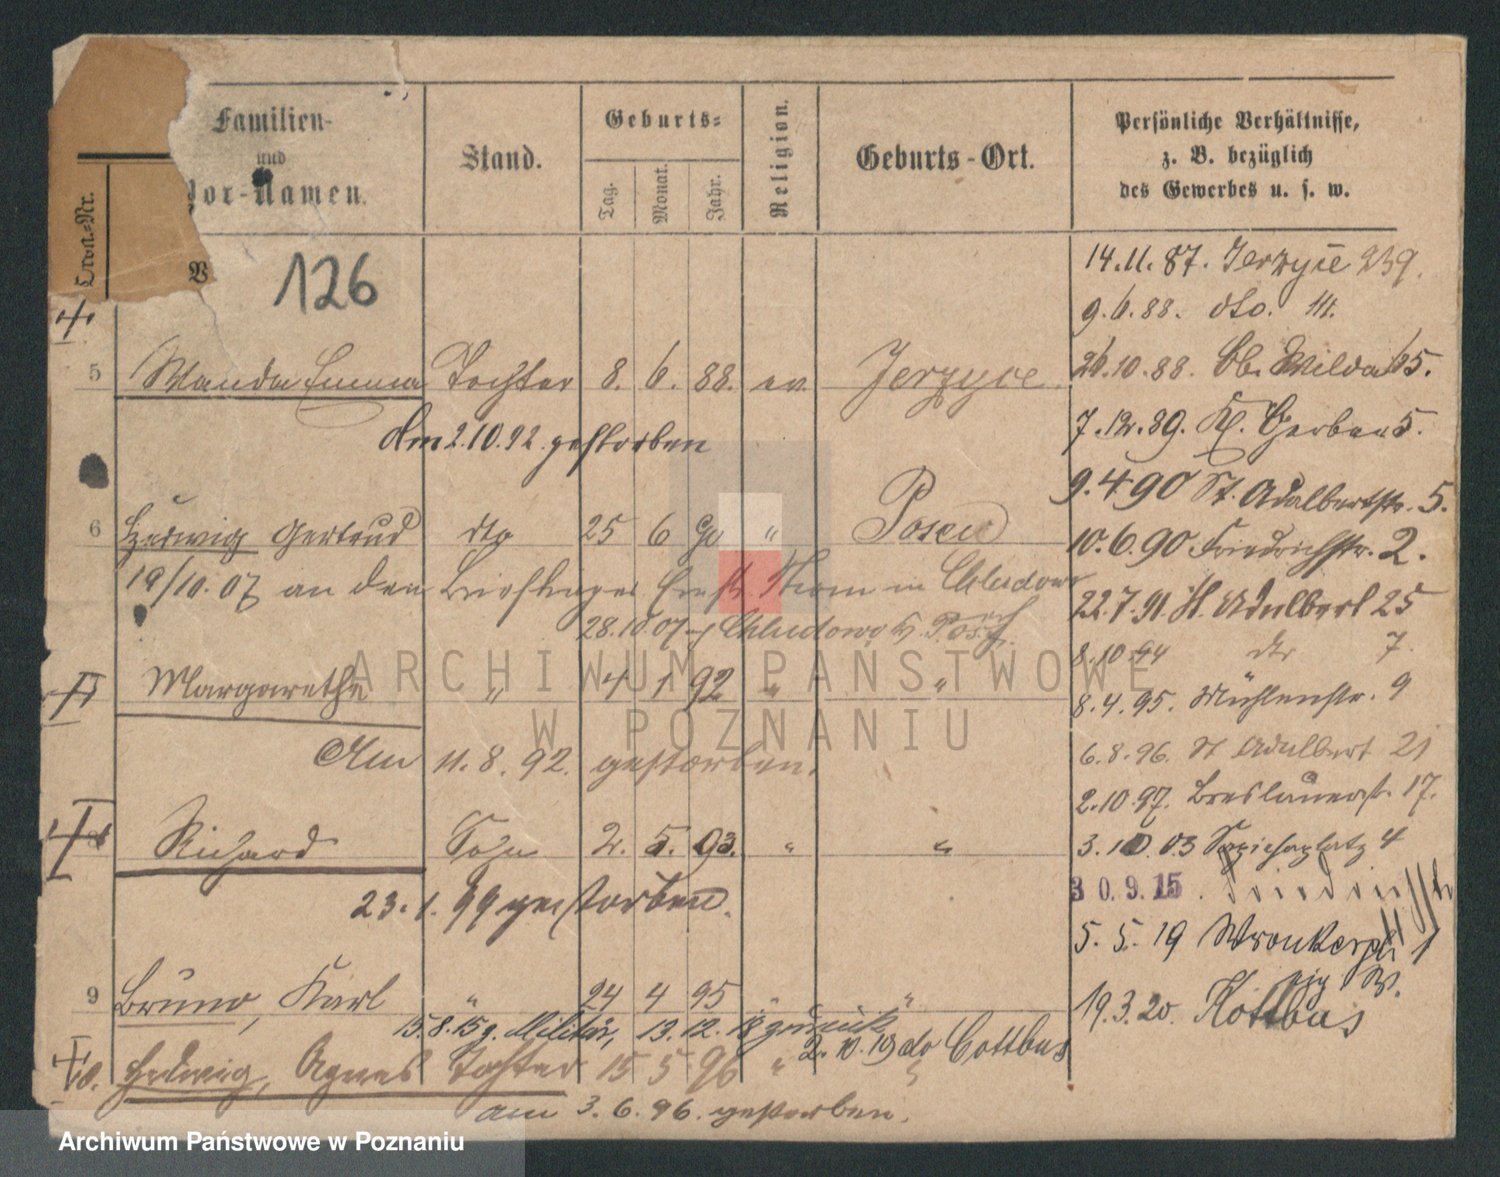 Familien-
und
Vor-Namen.
Stand.
Geburts-
Tag.
Monat.
Jahr.
Religion.
Geburts-Ort.
Persönliche Verhältnisse,
z. B. bezüglich
des Gewerbes u. s. w.
126
14.11.87. Jerzyce 239.
9.6.88. dto. 111.
5 Wanda Emma Tochter 8. 6. 88. ev. Jerzyce
26.10.88. Ob. Wilda 65.
Am 2.10.92. gestorben
7.12.89. Kl. Gerber 5.
9.4.90 St. Adalbertstr. 5.
6 Hedwig Gertrud dto 25 6 90 " Posen
10.6.90 Friedrichstr. 2.
19/10.07 an den Briefträger Ernst Thom in Chludowo
22.7.91 St. Adalbert 25
28.10.07 Chludowo Kr. Posen
8.10.94 dto 7.
Margarethe " 4 1 92 " "
8.4.95. Mühlenstr. 9
Am 11.8.92. gestorben.
6.8.96. St Adalbert 21
2.10.97. Breslauerstr. 17.
Richard Sohn 2. 5. 93. " "
3.10.03 Sapiehaplatz 4
30.9.15.
23.1.99 gestorben.
5.5.19 Wronkerpl. 1
9 Bruno, Karl " 24 4 95 " "
19.3.20. Kottbus
15.8.15 z. Militär, 13.12.18 zurück
2.10.19 do Cottbus
10. Hedwig, Agnes Tochter 15 5 96 " "
am 3.6.96. gestorben.
ARCHIWUM PAŃSTWOWE
W POZNANIU
Archiwum Państwowe w Poznaniu